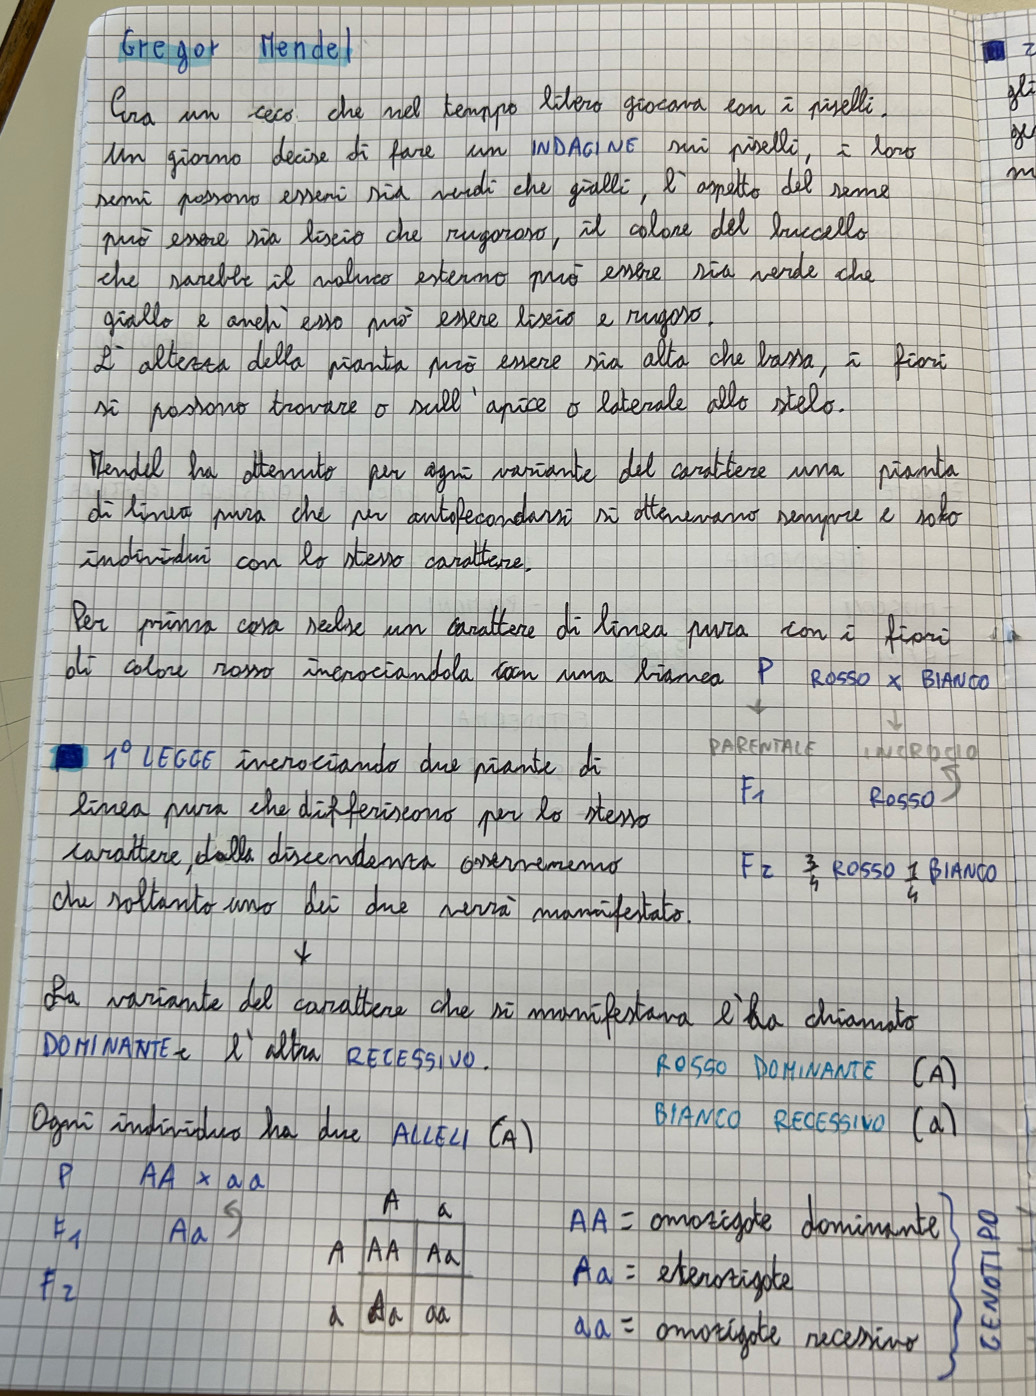 Gregor Mendel
Era un ceco che nel temppo libero giocava con i piselli.
Un giorno decise di fare un INDAGINE sui piselli, i loro
semi possono esseri sia verdi che gialli, l'aspetto del seme
può essere sia liscio che rugoroso, il colore del buccello
che sarebbe il voluco esterno può essere sia verde che
giallo e anch'esso può essere liscio e rugoso.
L'altezza della pianta può essere sia alta che bassa, i fiori
si possono trovare o sull'apice o laterale allo stelo.
Mendel ha ottenuto per ogni variante del carattere una pianta
di linea pura che per autofecondarsi si ottenevano sempre e solo
individui con lo stesso carattere.
Per prima cosa scelse un carattere di linea pura con i fiori
di colore rosso incrociandola con una bianca P ROSSO x BIANCO
↓ ↓
PARENTALE INCROCIO
1° LEGGE incrociando due piante di
linea pura che differiscono per lo stesso
carattere, dalla discendenza osserveremo
che soltanto uno dei due verrà manifestato.
F1 ROSSO
F2 3/4 ROSSO 1/4 BIANCO
↓
La variante del carattere che si manifestava l'ha chiamato
DOMINANTE e l'altra RECESSIVO.
ROSSO DOMINANTE (A)
BIANCO RECESSIVO (a)
Ogni individuo ha due ALLELI (A)
P AA x aa
F1 Aa
F2
A a
A AA Aa
a Aa aa
AA = omozigote dominante
Aa = eterozigote
aa = omozigote recessivo
GENOTIPO
gli
m